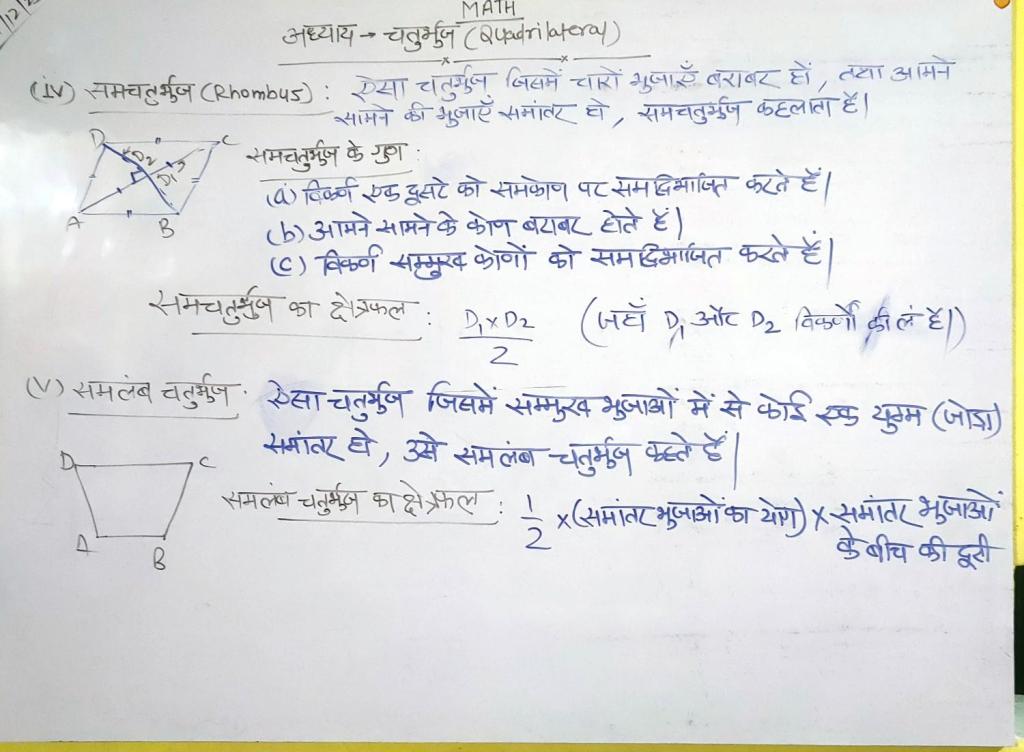 12/2
MATH
अध्याय → चतुर्भुज (Quadrilateral)
(iv) समचतुर्भुज (Rhombus) : ऐसा चतुर्भुज जिसमें चारों भुजाएँ बराबर हों, तथा आमने
सामने की भुजाएँ समांतर हो, समचतुर्भुज कहलाता है।
D C
D2 D1
A B
समचतुर्भुज के गुण :
(a) विकर्ण एक दूसरे को समकोण पर समद्विभाजित करते हैं।
(b) आमने सामने के कोण बराबर होते हैं।
(c) विकर्ण सम्मुख कोणों को समद्विभाजित करते हैं।
समचतुर्भुज का क्षेत्रफल : D1 x D2 / 2 (जहाँ D1 और D2 विकर्णों की लं है।)
(V) समलंब चतुर्भुज . ऐसा चतुर्भुज जिसमें सम्मुख भुजाओं में से कोई एक युग्म (जोड़ा)
समांतर हो, उसे समलंब चतुर्भुज कहते हैं।
D C
A B
समलंब चतुर्भुज का क्षेत्रफल : 1/2 x (समांतर भुजाओं का योग) x समांतर भुजाओं
के बीच की दूरी